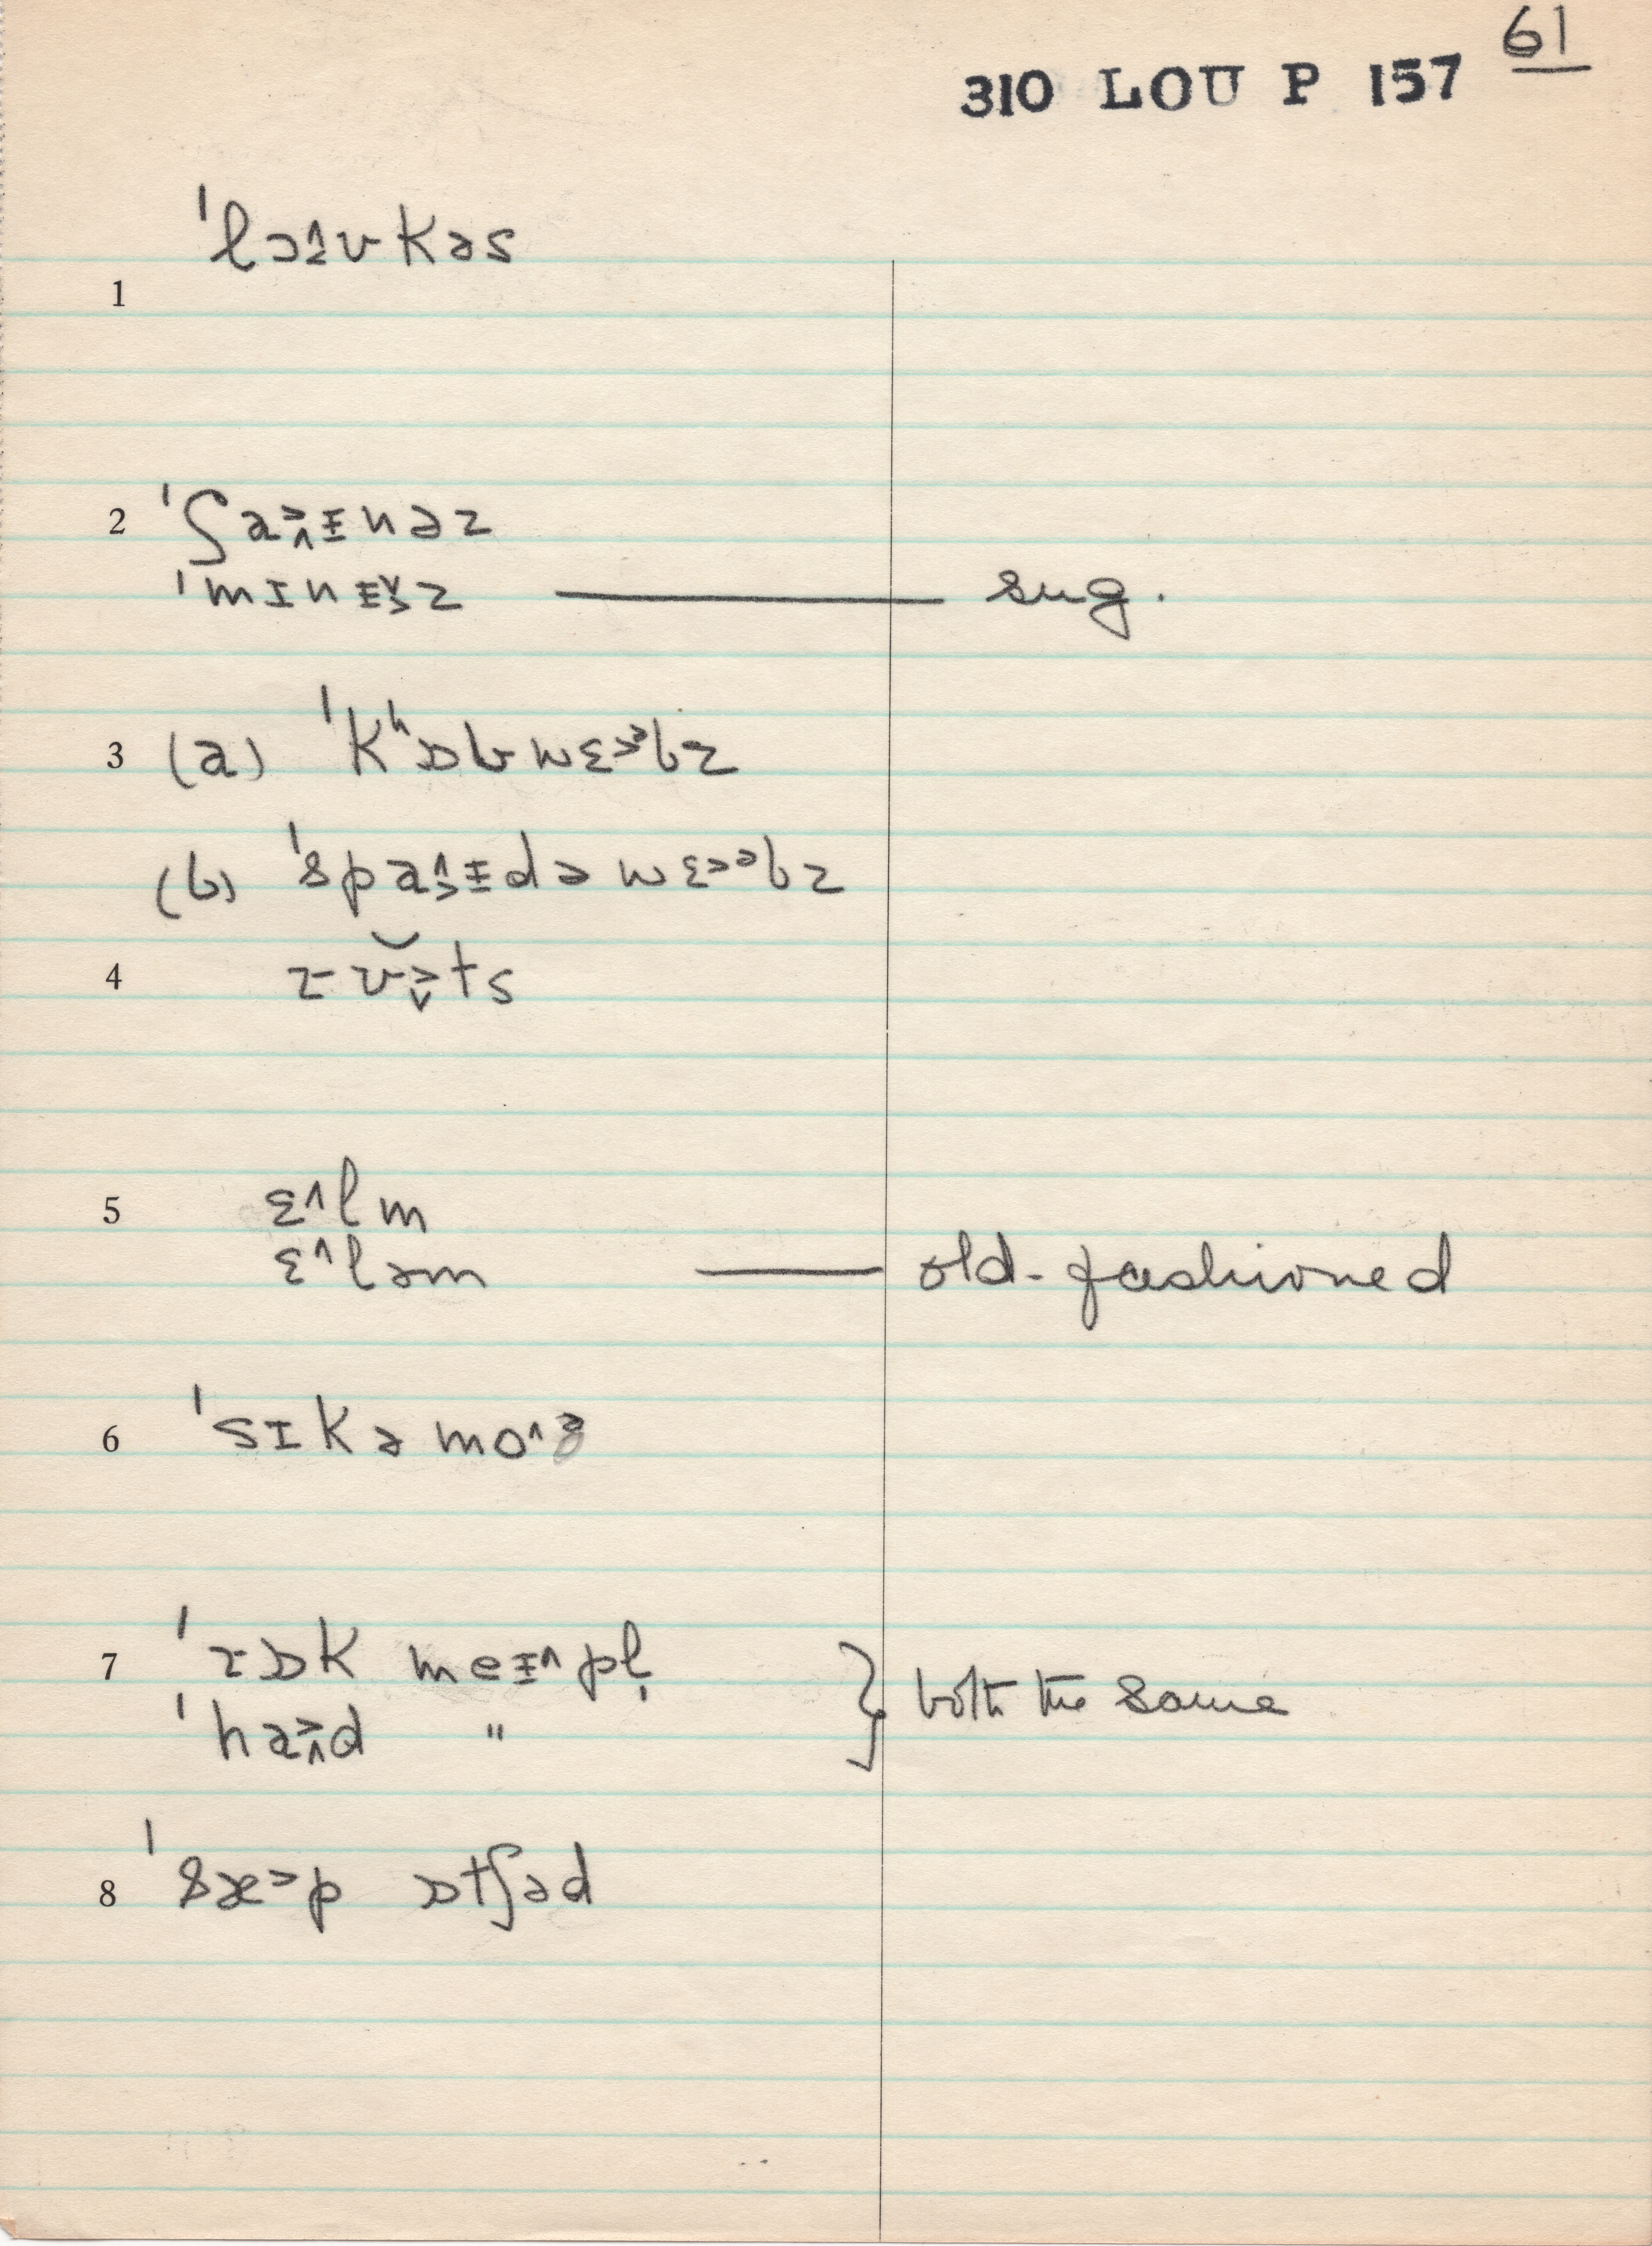 61
310 LOU P 157
ˈlɔ˄˂ʊkəs
1
2 ˈʃa˃˄ɨnəz
ˈmɪnɨ˅˃z — sug.
3 (a) ˈkʰɒbwɛ˃ᵊbz
(b) ˈspa˄˃ɨdəwɛ˃ᵊbz
4 rʊ̆˃˅ts
5 ɛ˄lm
ɛ˄ləm — old-fashioned
6 ˈsɪkəmo˄ᵊ
7 ˈrɒk meɨ˄pl̩ } both the same
ˈha˃˄d "
8 ˈsæ˃p ɒtʃəd